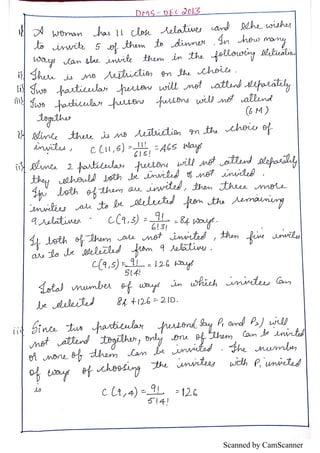 DMS - DEC 2013
1) A woman has 11 close relatives and she wishes
to invite 5 of them to dinner. In how many
ways can she invite them in the following situation
i) There is no restriction on the choice.
ii) Two particular person will not attend separately
iii) Two particular persons will not attend
together (6M)
i) Since there is no restriction on the choice of
invites, C(11,5) = 11! / 6!5! = 465 ways
ii) Since 2 particular persons will not attend separately
they should both be invited or not invited.
If both of them are invited, then three more
invitees are to be selected from the remaining
9 relatives. C(9,3) = 9! / 6!3! = 84 ways.
If both of them are not invited, then five invites
are to be selected from 9 relatives.
C(9,5) = 9! / 5!4! = 126 ways
Total number of ways in which invitees can
be selected 84 + 126 = 210.
iii) Since two particular persons (say P1 and P2) will
not attend together, only one of them can be invited
or none of them can be invited. The number
of ways of choosing the invitees with P1 invited
is C(9,4) = 9! / 5!4! = 126
Scanned by CamScanner